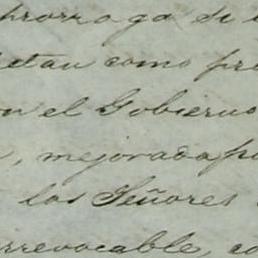 prorroga si
etan como pro
n el Gobierno
, mejorada po
los Señores
irrevocable, co